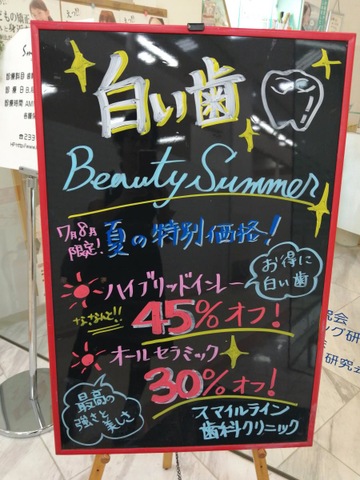 白い歯
Beauty Summer
7月8月
限定!
夏の特別価格!
お得に
白い歯
ハイブリッドインレー
なな、なんと!!
45%オフ!
オールセラミック
30%オフ!
最高の
強さと
美しさ
スマイルライン
歯科クリニック